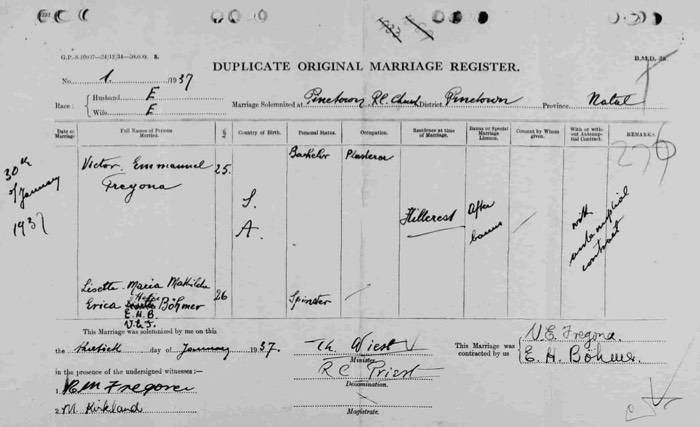 G.P.-S.10007-24/12/34-50,000. S.
B.M.D. 3a.
DUPLICATE ORIGINAL MARRIAGE REGISTER.
No. 1. 1937
Race: { Husband E
Wife E
Marriage Solemnized at Pinetown R.C. Church District Pinetown Province Natal
Date of Marriage.
Full Names of Persons Married.
Country of Birth.
Personal Status.
Occupation.
Residence at time of Marriage.
Banns or Special Marriage Licence.
Consent by Whom given.
With or without Antenuptial Contract.
REMARKS.
276
30th of January 1937
Victor Emmanuel
Fregona
25.
Bachelor
Plasterer
S.
A.
Hillcrest
After banns
with antenuptial contract
Lisette Maria Mathilde
Erica Böhmer
26
Spinster
E. H. B.
V. E. F.
This Marriage was solemnized by me on this
the thirtieth day of January 1937.
Th Wiest
Minister
R C Priest
Denomination.
Magistrate.
This Marriage was contracted by us
V. E. Fregona.
E. H. Böhmer
in the presence of the undersigned witnesses:—
1. Fregona
2. M. Kirkland